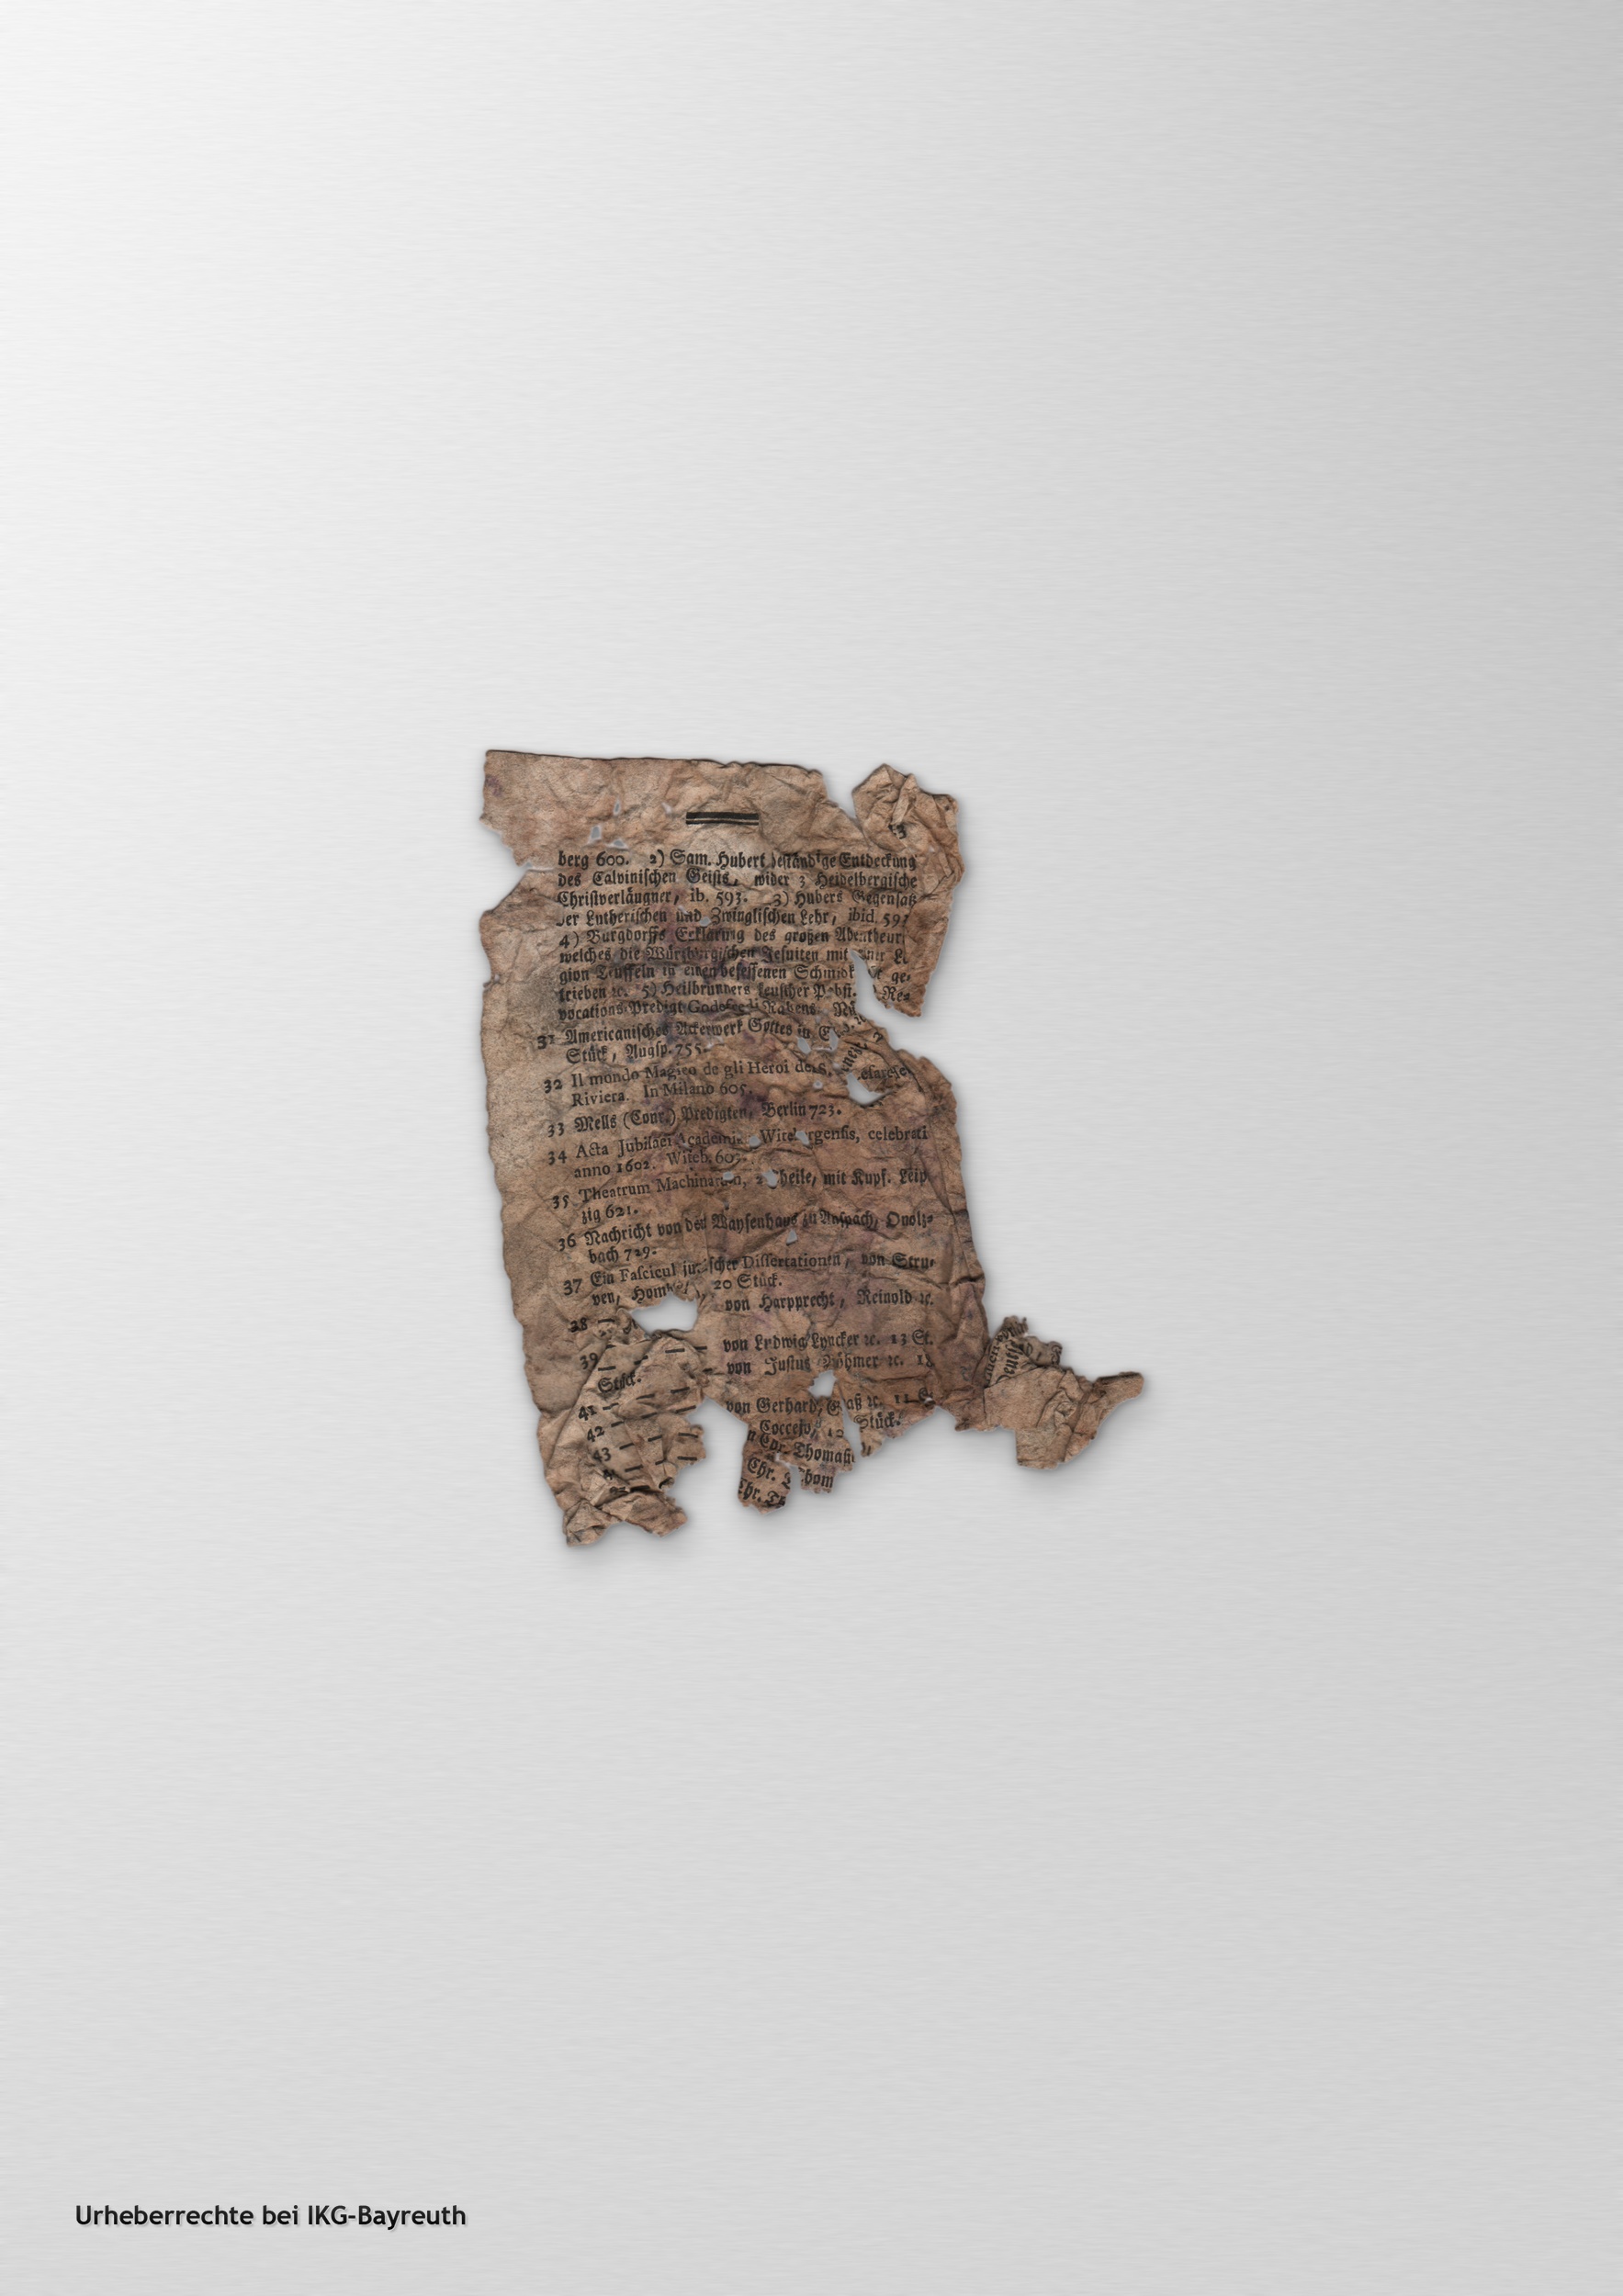 berg 600. 2) Sam. Hubert beständige Entdeckung
des Calvinischen Geists, wider 3 Heidelbergische
Christverläugner, ib. 593. 3) Hubers Gegensatz
der Lutherischen und Zwinglischen Lehr, ibid. 592
4) Burgdorffs Erklärung des großen Abentheurs
welches die Würtzburgischen Jesuiten mit einer Le
gion Teuffeln in einen besessenen Schmidt ge-
trieben ꝛc. 5) Heilbrunners keuscher Pabst. Re-
vocations-Predigt Godefredi Rabens.
31 Americanisches Ackerwerk Gottes in
Stück, Augsp. 755.
32 Il mondo Magico de gli Heroi de
Riviera. In Milano 605.
33 Mells (Conr.) Predigten, Berlin 723.
34 Acta Jubilaei Academiae Witebergensis, celebrati
anno 1602. Witeb. 603.
35 Theatrum Machinarum, 2 Theile, mit Kupf. Leip
zig 621.
36 Nachricht von den Waysenhaus zu Anspach, Onolz-
bach 729.
37 Ein Fascicul juristischer Dissertationen, von Stru-
ven, 20 Stück.
38 von Harpprecht, Reinold ꝛc.
39 — von Ludwig Lyncker ꝛc. 13 St.
— von Justus Böhmer ꝛc. 18
Stück.
41 — von Gerhard, ꝛc. 11
42 — Coccejo, 12 Stück.
43 — Chr. Thomasi
Chr. Thom
Chr. Th
Urheberrechte bei IKG-Bayreuth